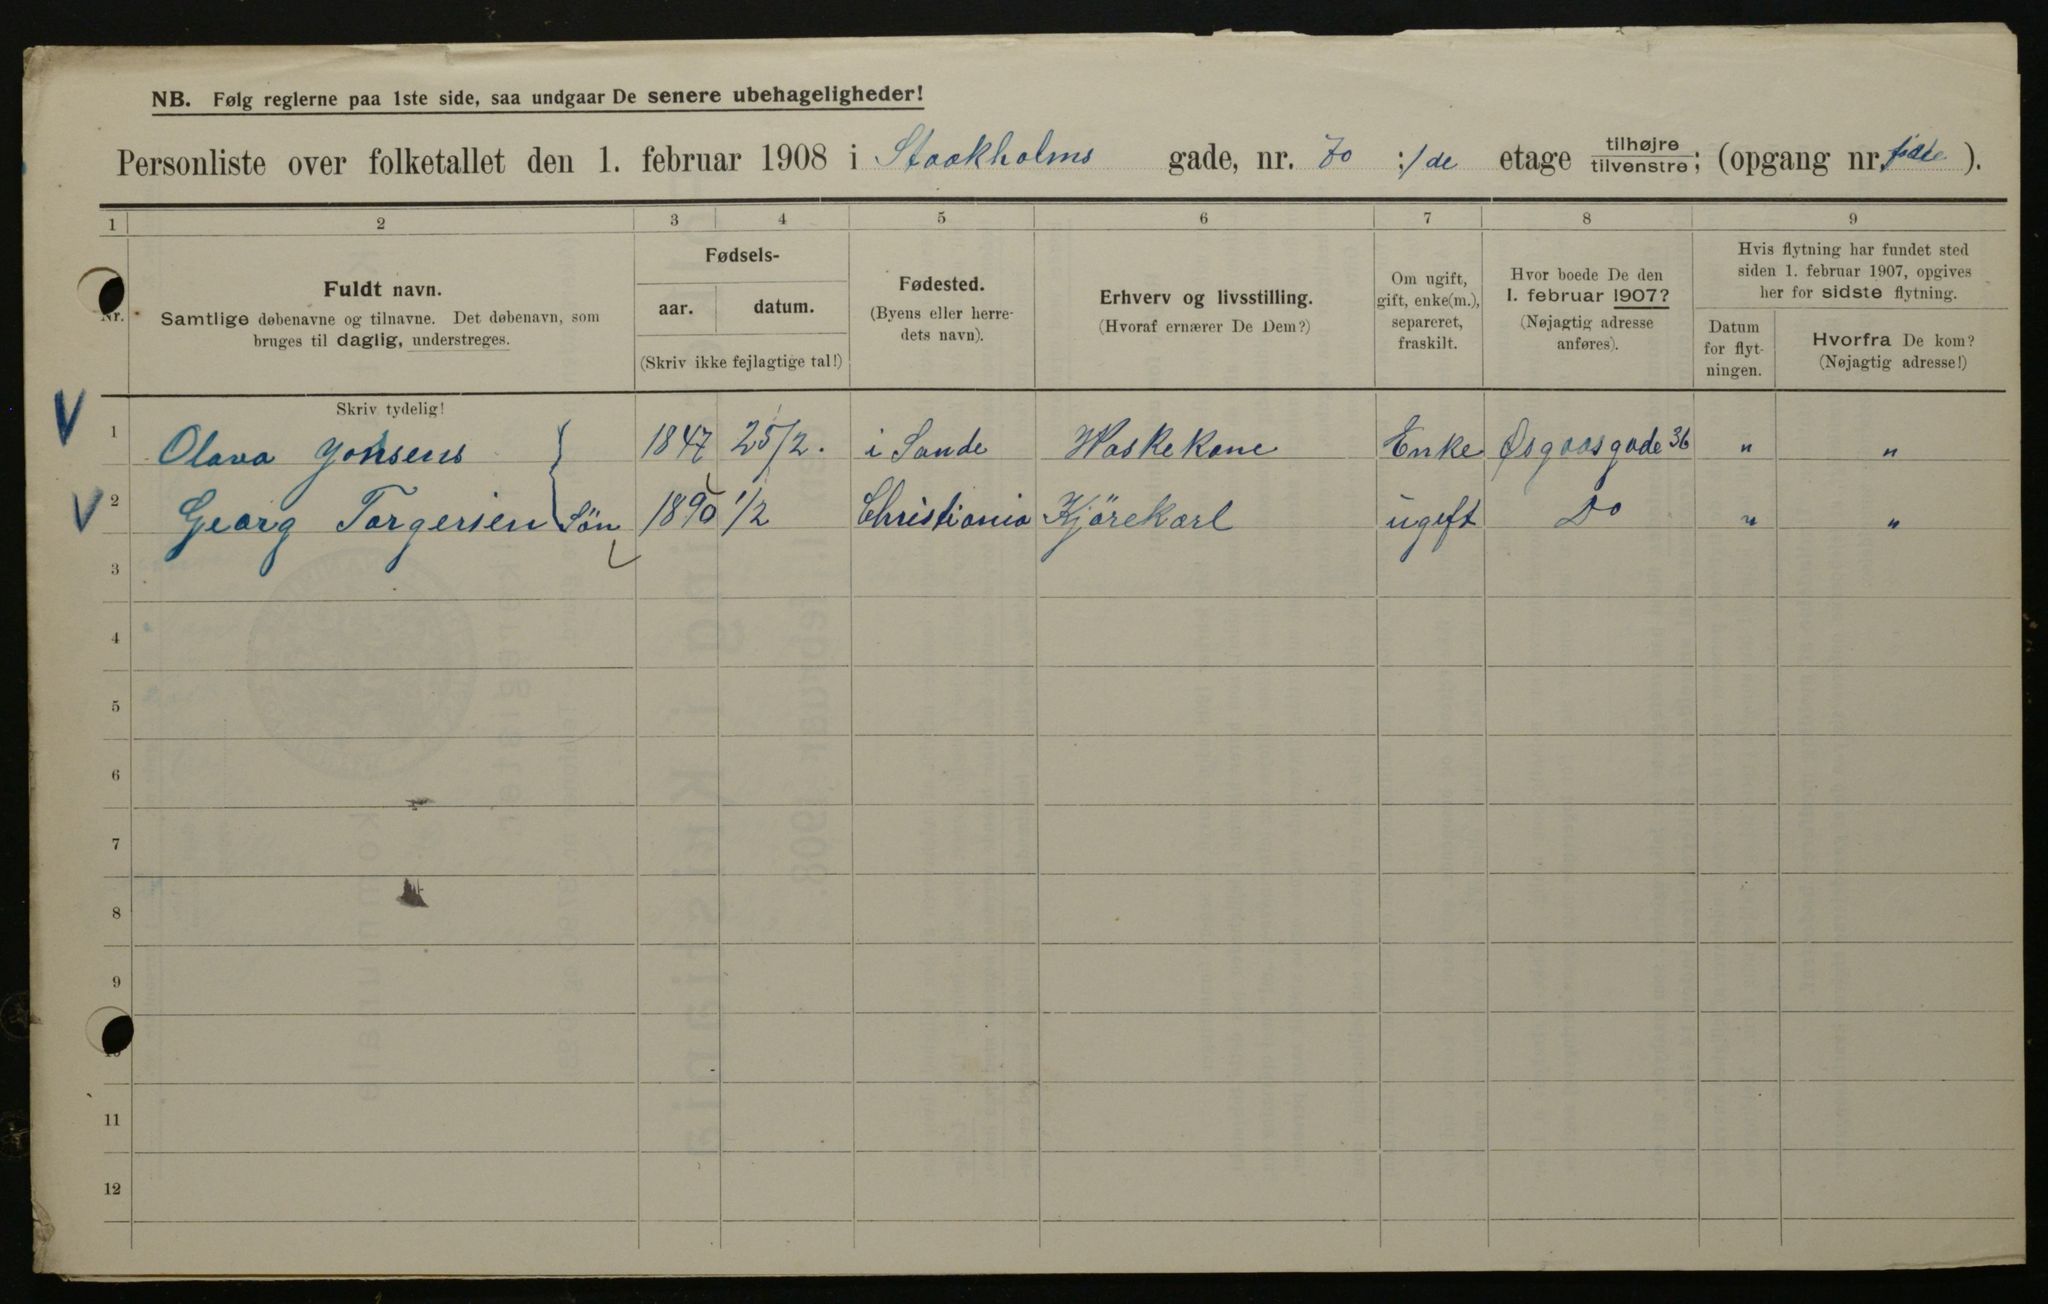 NB. Følg reglerne paa 1ste side, saa undgaar De senere ubehageligheder!
Personliste over folketallet den 1. februar 1908 i Stockholms gade, nr. 70 :/de etage tilhøjre tilvenstre; (opgang nr. ).
1 2 3 4 5 6 7 8 9
Nr.
Fuldt navn.
Samtlige døbenavne og tilnavne. Det døbenavn, som
bruges til daglig, understreges.
Skriv tydelig!
Fødsels-
aar. datum.
(Skriv ikke fejlagtige tal!)
Fødested.
(Byens eller herre-
dets navn).
Erhverv og livsstilling.
(Hvoraf ernærer De Dem?)
Om ugift,
gift, enke(m.),
separeret,
fraskilt.
Hvor boede De den
1. februar 1907?
(Nøjagtig adresse
anføres).
Hvis flytning har fundet sted
siden 1. februar 1907, opgives
her for sidste flytning.
Datum
for flyt-
ningen.
Hvorfra De kom?
(Nøjagtig adresse!)
V 1 Olava Johsens 1847 25/2. i Sande Waskekone Enke Øsgaasgade 36 " "
V 2 Georg Torgersen Søn 1890 1/2 Christiania Kjörekarl ugift Do " "
3
4
5
6
7
8
9
10
11
12